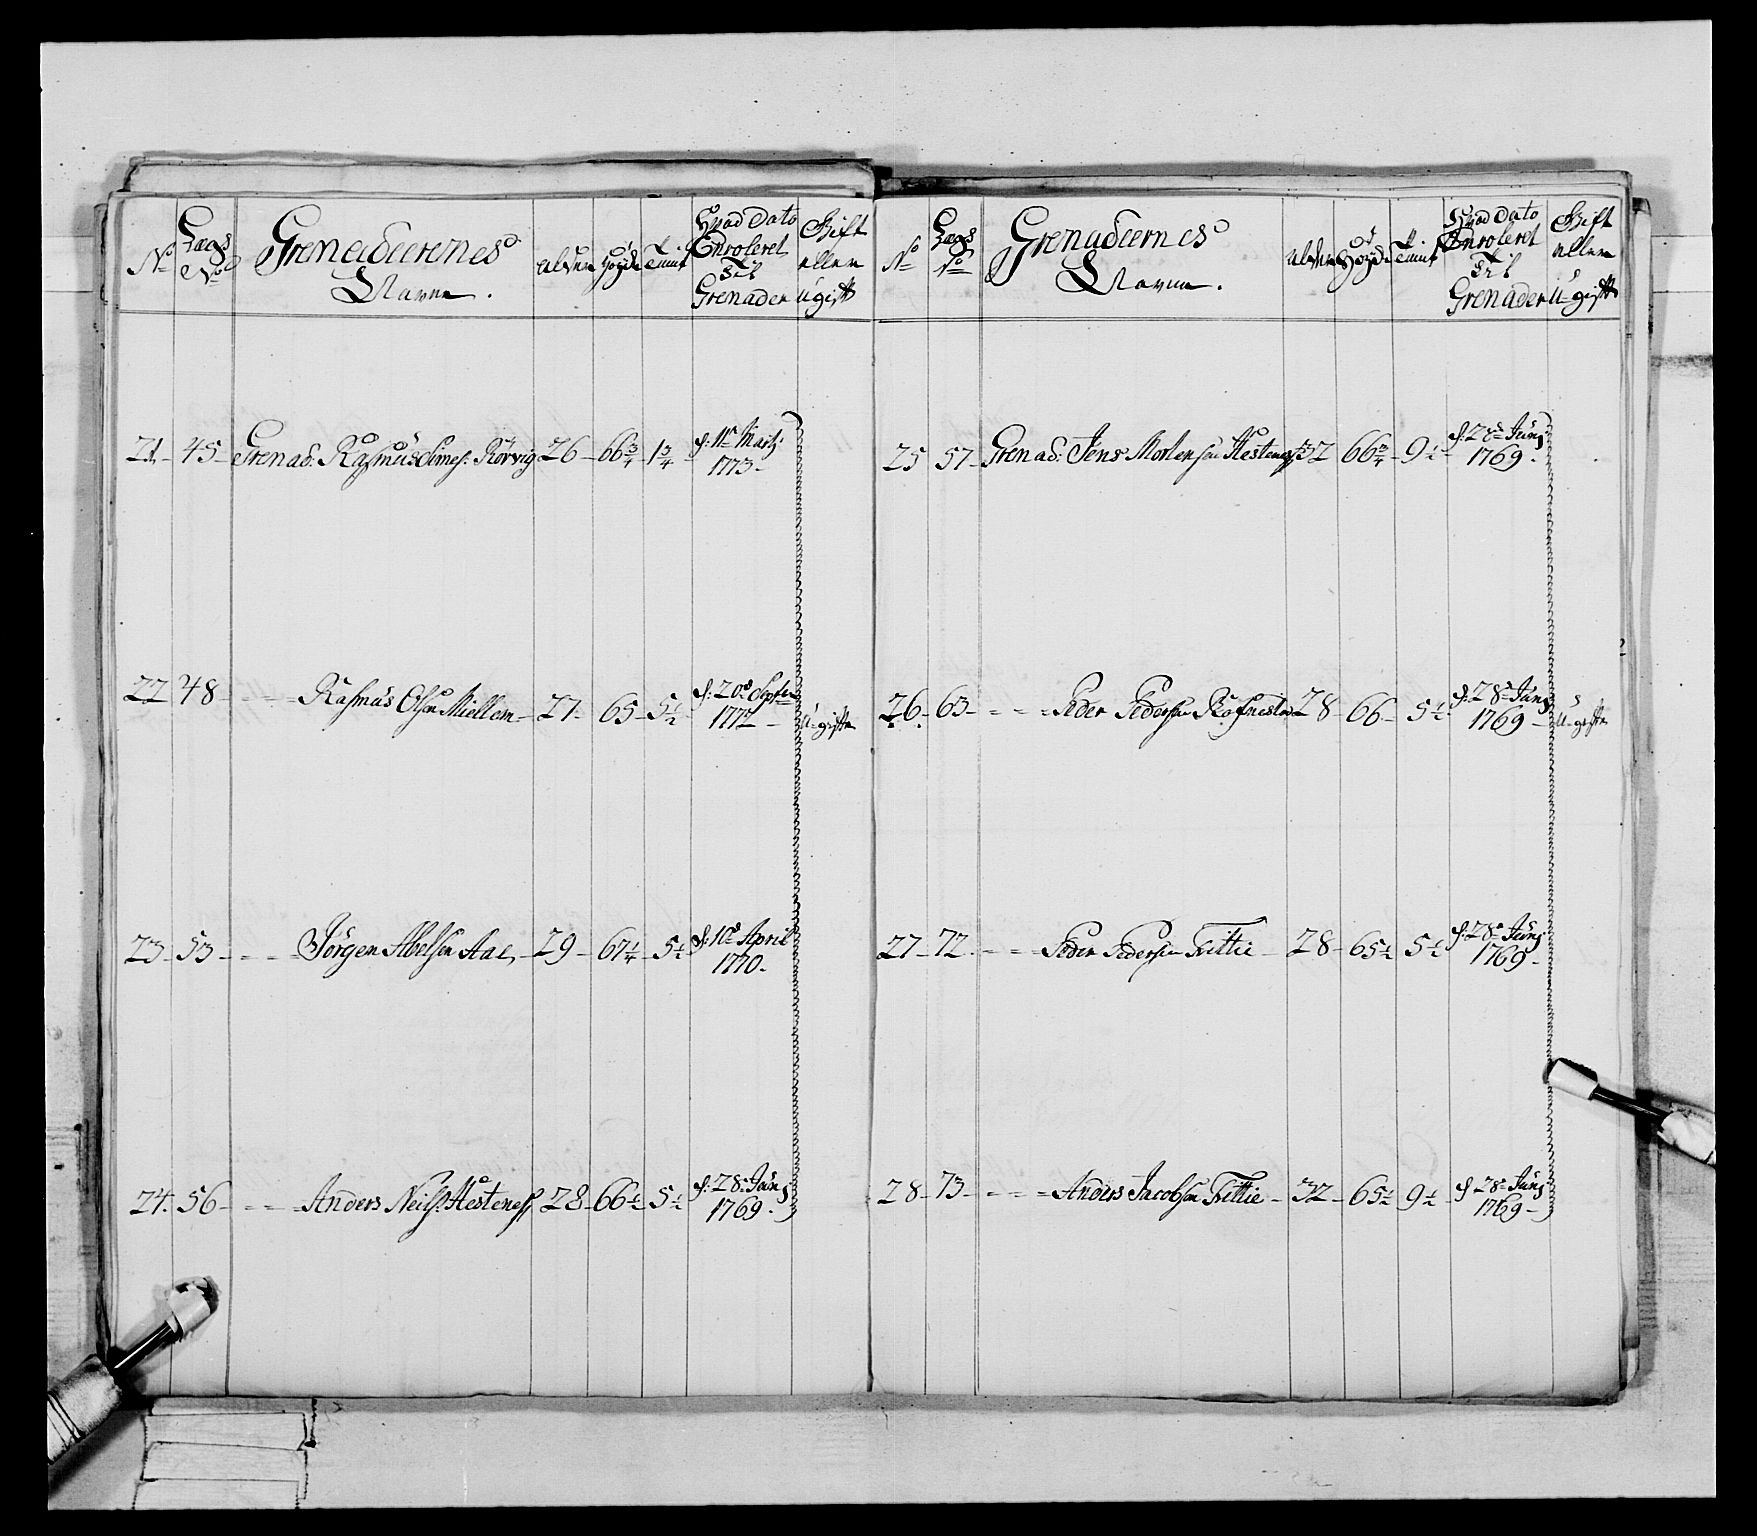 No Lægs No Grenadeerenes Navne. Alder Høyde Tient Hvad Dato Enroleret Til Grenader Gift eller Ugift
21 - 45 - Grenad: Rasmus Simes: Rørvig 26 - 66 3/4 - 1 3/4 - d: 11te Martz
1773 -
22 48 - - - Rasmus Olsen Miellem - 27 - 65 - 5 1/2 - d: 20de Septr
1772 - Ugifte
23 - 53 - - - Jørgen Abelsen Aae, - 29 - 67 1/4 - 5 1/2 d: 10de April
1770 -
24 - 56 - - - Anders Neils: Hesteness 28 - 66 1/2 - 5 1/2 - d: 28de Juny
1769 -
No Lægs No Grenadeernes Navne. Alder Høyde Tient Hvad Dato Enroleret Til Grenader Gift eller Ugift
25 57 - Grenad: Jens Mortensen Hestenes 32 66 3/4 - 9 1/2 - d: 28de Juny
1769 -
26 - 63 - - - Peder Pedersen 28 - 66 - 5 1/2 - d: 28de Juny
1769 - Ugifte
27 - 72 - - - Peder Pedersen Fittie - 28 - 65 1/2 - 5 1/2 d: 28de Juny
1769 -
28 - 73 - - - Anders Jacobsen Fittie - 32 - 65 1/2 - 9 1/2 - d: 28de Juny
1769 -